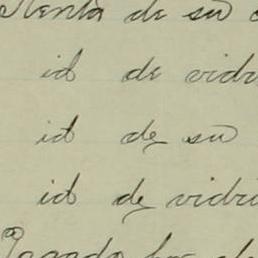 Renta de su
id de vidri
id de su
id de vidri
Pagado por